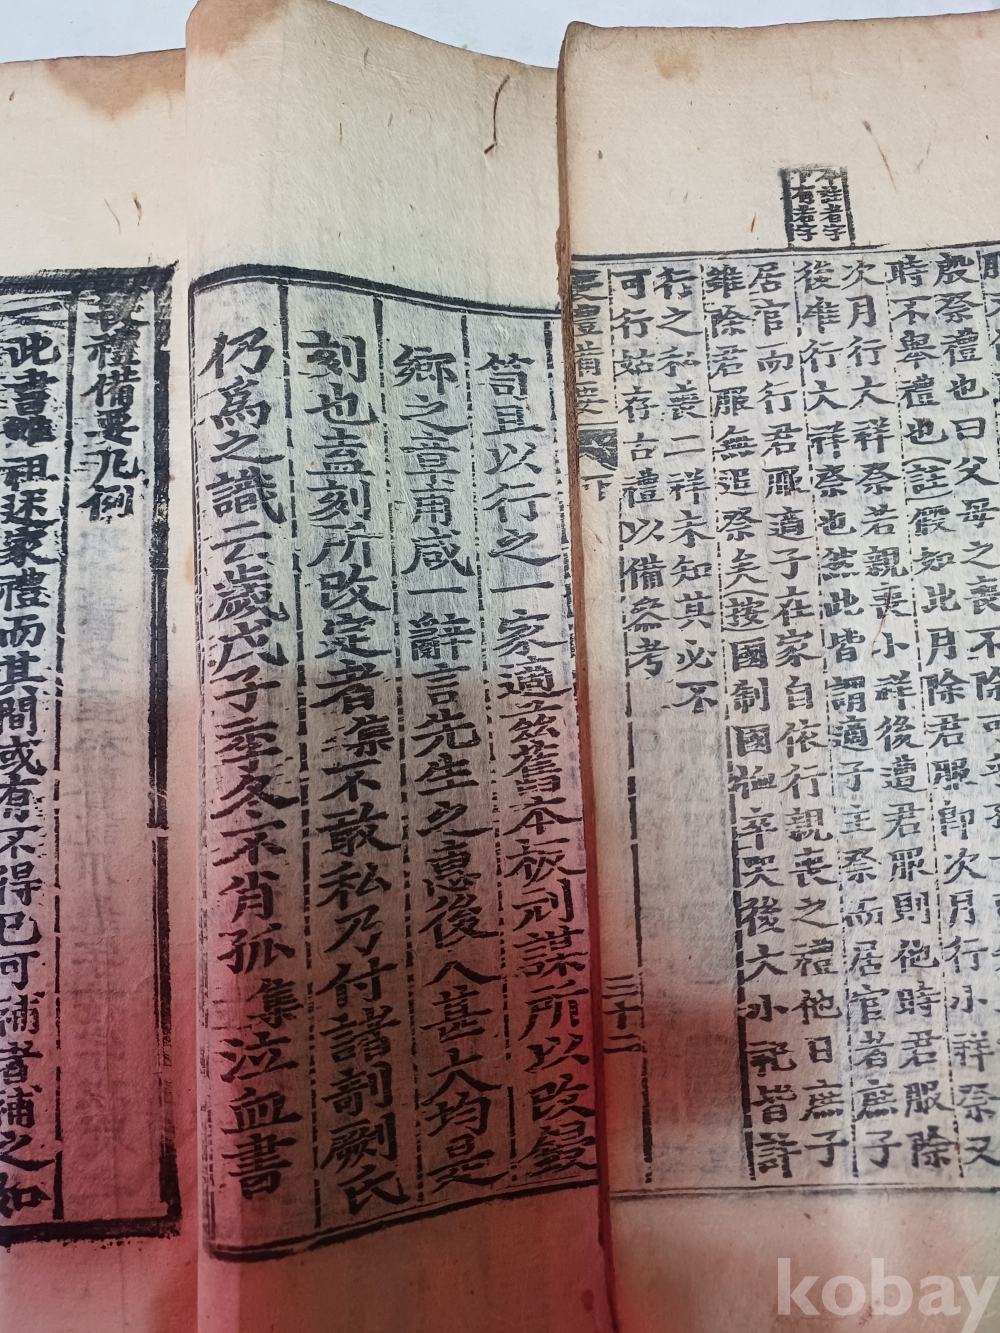 不註者字
下有考字
殷祭禮也曰父母之喪不除可乎
時不舉禮也(註)假如此月除君服卽次月行小祥祭又
次月行大祥祭若親喪小祥後遭君服則他時君服除
後唯行大祥祭也然此皆謂適子主祭而居官者庶子
居官而行君服適子在家自依行親喪之禮他日庶子
雖除君服無追祭矣(按)國制國恤卒哭後大小祀皆許
行之私喪二祥未知其必不
可行姑存古禮以備參考
喪禮備要 下 三十二
笥且以行之一家適茲舊本板刓謀所以改鋟
鄕之章甫咸一辭言先生之惠後人甚大均是
刻也盍刻所改定者集不敢私乃付諸剞劂氏
仍爲之識云歲戊子季冬不肖孤集泣血書
喪禮備要凡例
一此書雖祖述家禮而其間或有不得已可補者補之如
kobay